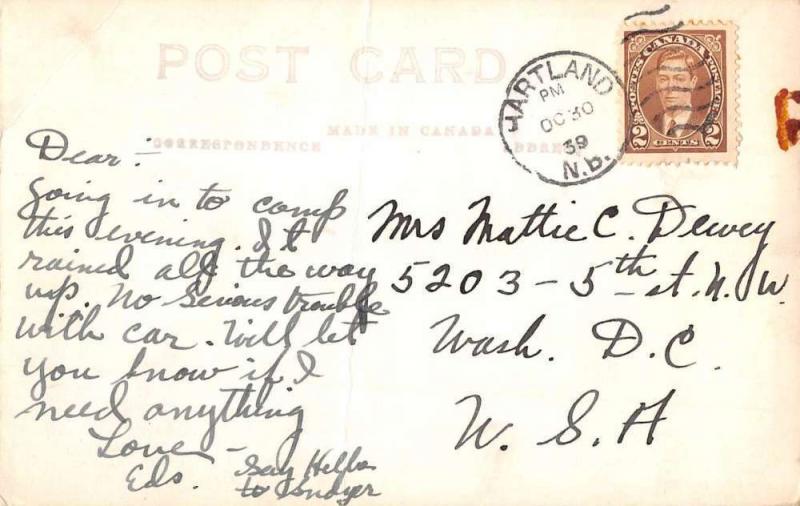 POST CARD
MADE IN CANADA
CORRESPONDENCE
HARTLAND
PM
OC 30
39
N.B.
POSTES CANADA POSTAGE
2 CENTS 2
Dear:-
Going in to camp
this evening. It
rained all the way
up. No serious trouble
with car. Will let
you know if I
need anything
Love -
Eds.
Say Hello
to
Mrs Mattie C. Dewey
5203 - 5th st. N. W.
Wash. D. C.
U. S. A